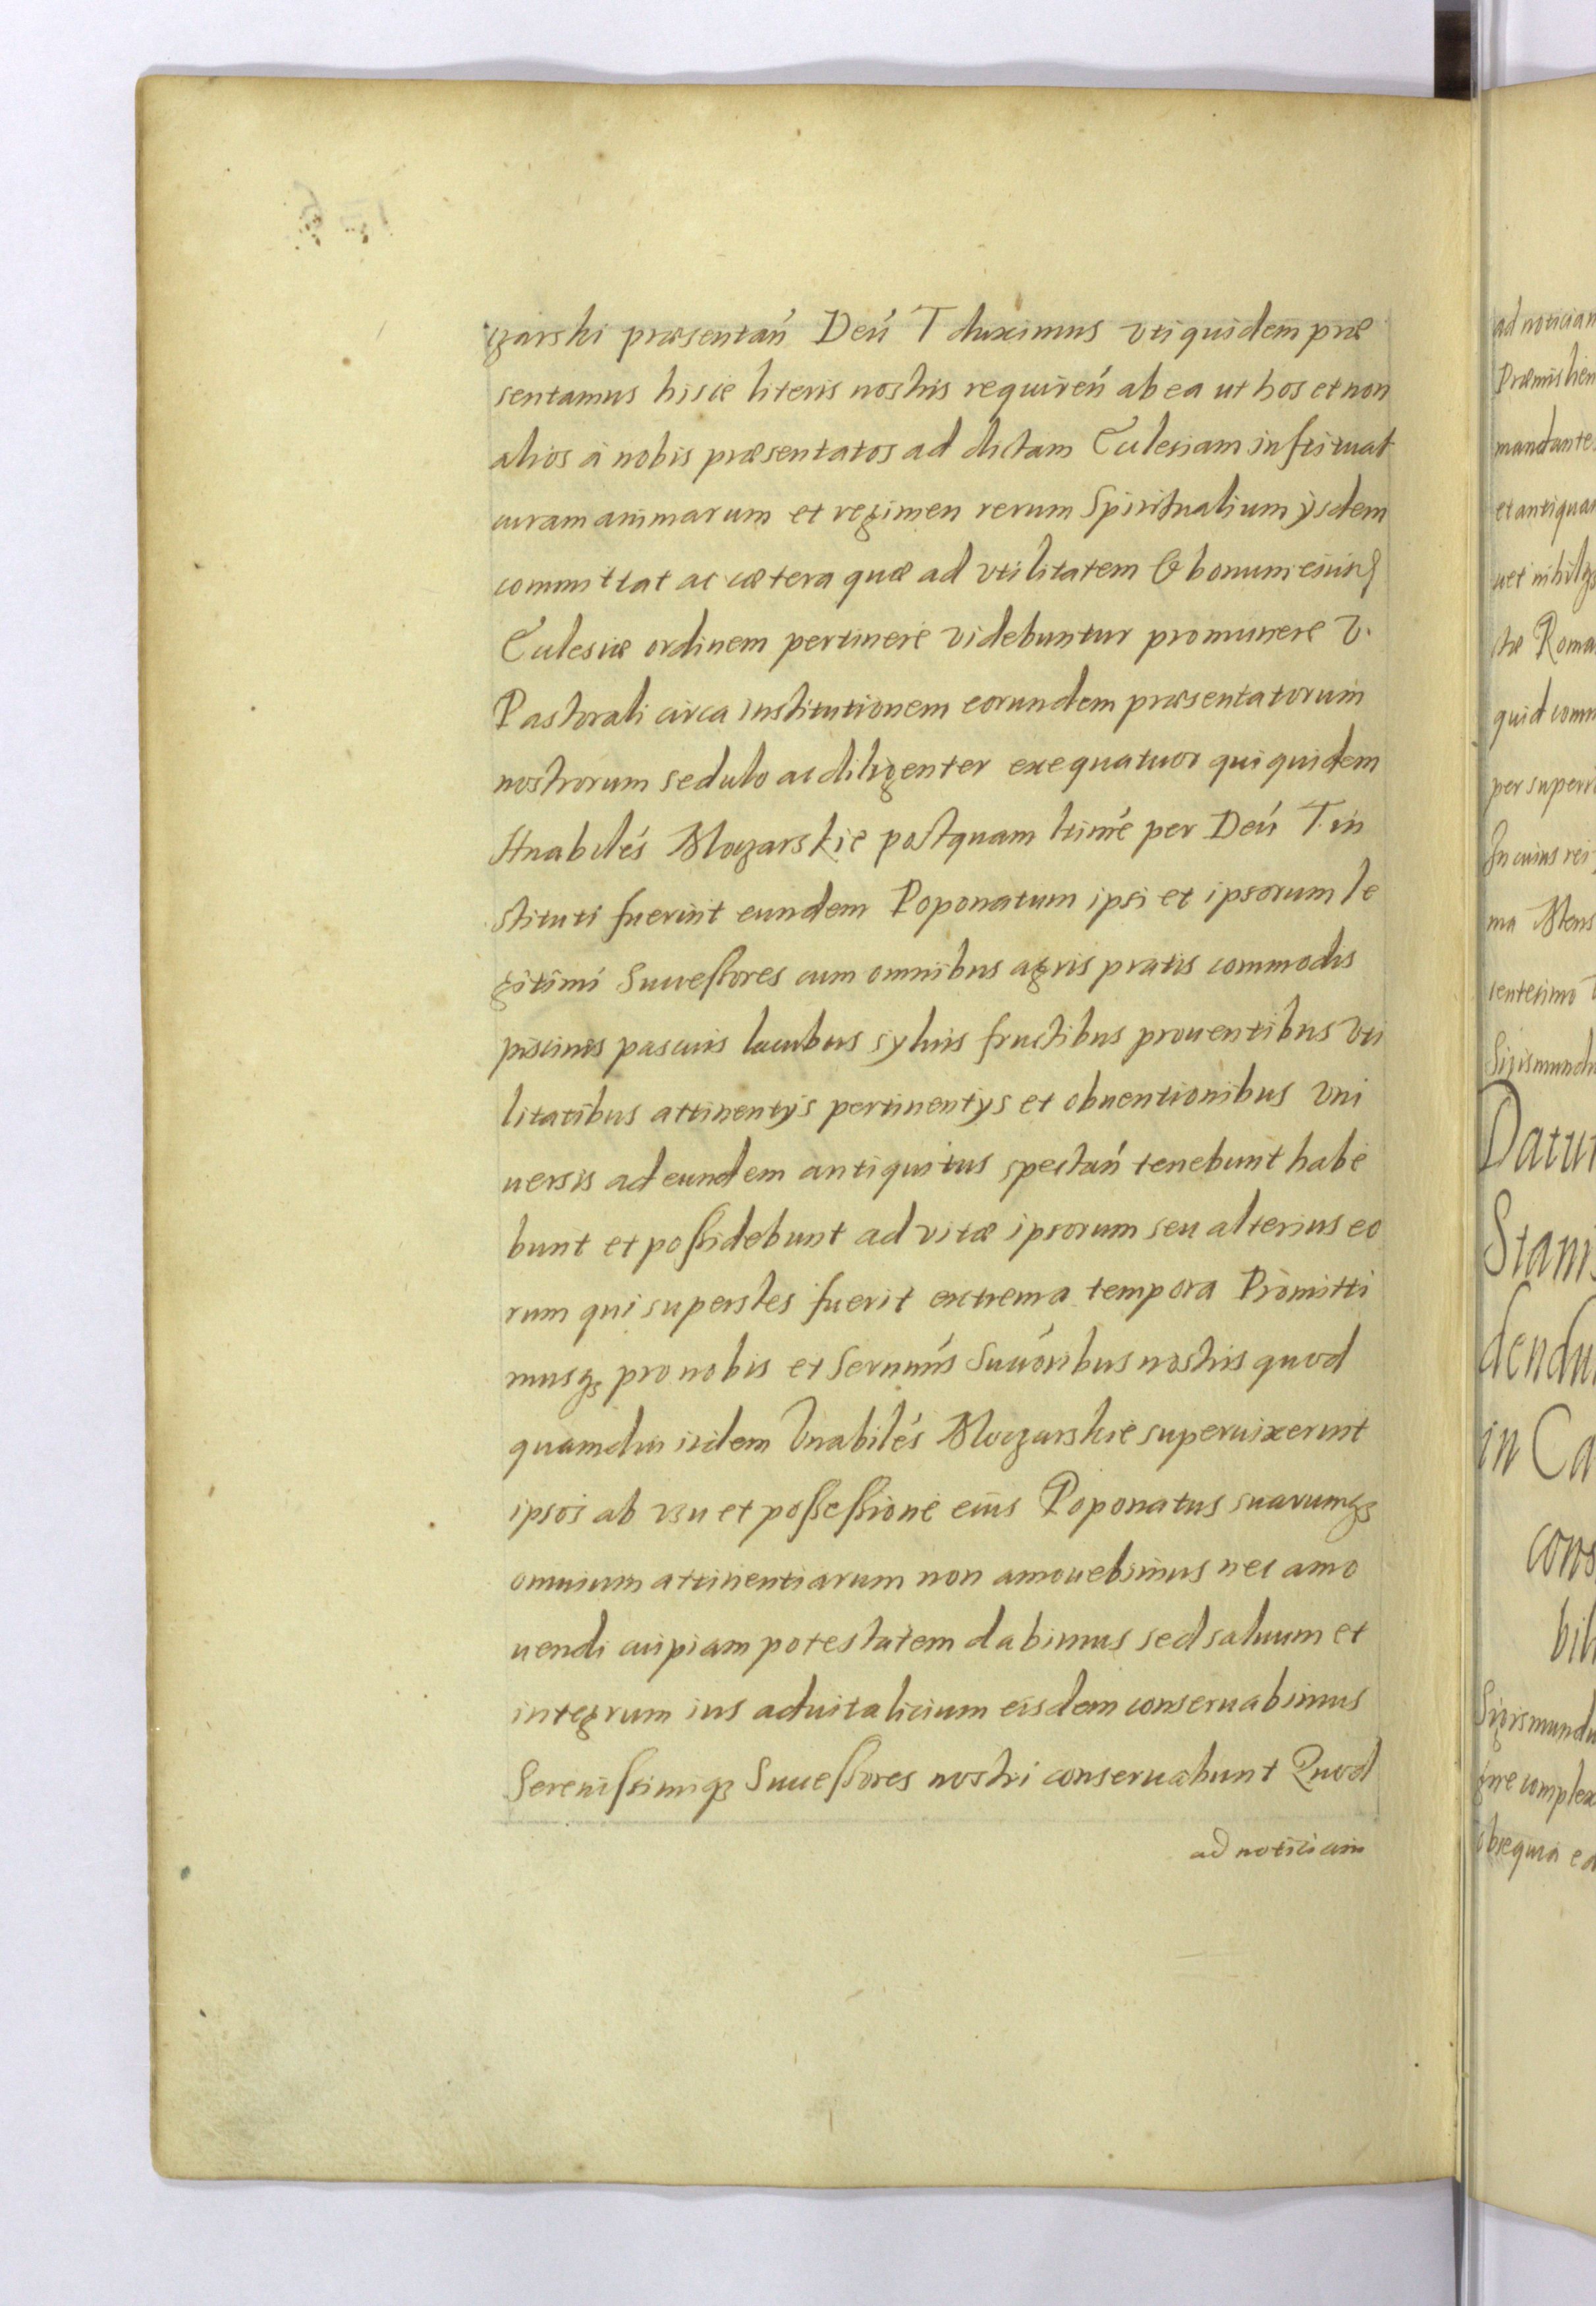 czarski præsentań Deń T duximus vti quidem præ
sentamus hisce literis nostris requireń ab ea ut hos et non
alios à nobis præsentatos ad dictam Ecclesiam instituat
curam animarum et regimen rerum Spiritualium ysdem
committat ac cætera quæ ad vtilitatem & bonum eiusq
Ecclesiæ ordinem pertinere videbuntur pro munere v.
Pastorali circa institutionem eorundem præsentatorum
nostrorum sedulo ac diligenter exequatuor qui quidem
Hnabilés Moczarskie postquam ltimé per Deń T. in
stituti fuerint eundem Poponatum ipsi et ipsorum le
gitimi Successores cum omnibus agris pratis commodis
piscinis pascuis lacubus syluis fructibus prouentibus vti
litatibus attinentys pertinentys et obuentionibus vni
uersis ad eundem antiquitus spectań tenebunt habe
bunt et possidebunt ad vitæ ipsorum seu alterius eo
rum qui superstes fuerit extrema tempora Promitti
musqꝫ pro nobis et Sernmis Succóribus nostris quod
quamdiu iidem Hnabilés Moczarskie superuixerint
ipsos ab vsu et possessione eius Poponatus suarumqꝫ
omnium attinentiarum non amouebimus nec amo
uendi cuipiam potestatem dabimus sed saluum et
integrum ius aduitalicium eisdem conseruabimus
Serenissimiqꝫ Successores nostri conseruabunt Quod
ad noticiam
ad noticiam
mandante
et antiquas
Roma
quid comm
per superi
In cuius rei
ma Mens
centesimo
Sigismundu
Datum
Stanis
dendu
in Ca
cons
bili
Sigismundu
complex
obsequia ea